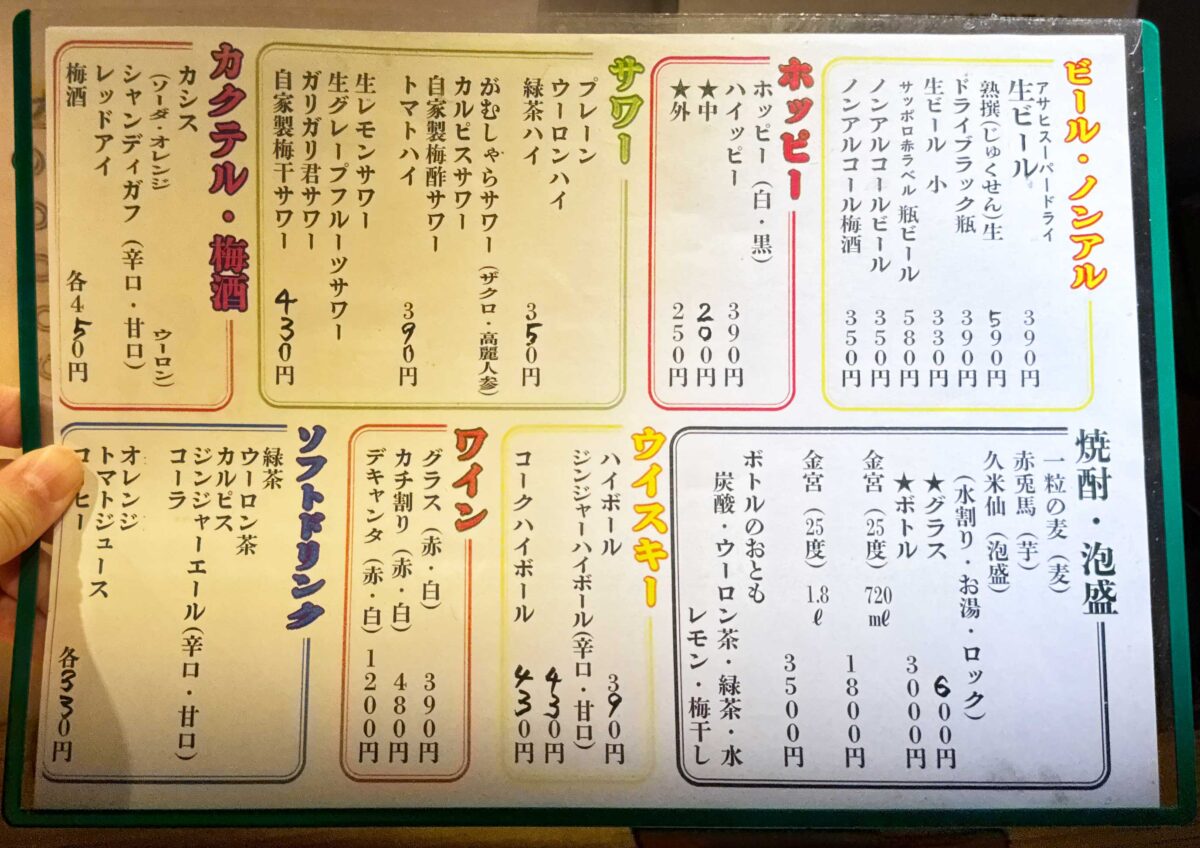 ビール・ノンアル
アサヒスーパードライ
生ビール 390円
熟撰(じゅくせん)生 590円
ドライブラック瓶 390円
生ビール 小 330円
サッポロ赤ラベル 瓶ビール 580円
ノンアルコールビール 350円
ノンアルコール梅酒 350円
ホッピー
ホッピー(白・黒)
ハイッピー 390円
★中 200円
★外 250円
サワー
プレーン
ウーロンハイ
緑茶ハイ 350円
がむしゃらサワー(ザクロ・高麗人参)
カルピスサワー
自家製梅酢サワー
トマトハイ 390円
生レモンサワー
生グレープフルーツサワー
ガリガリ君サワー
自家製梅干サワー 430円
カクテル・梅酒
カシス
(ソーダ・オレンジ ウーロン)
シャンディガフ(辛口・甘口)
レッドアイ
梅酒 各450円
焼酎・泡盛
一粒の麦(麦)
赤兎馬(芋)
久米仙(泡盛)
(水割り・お湯・ロック)
★グラス 600円
★ボトル 3000円
金宮(25度)720㎖ 1800円
金宮(25度)1.8ℓ 3500円
ボトルのおとも
炭酸・ウーロン茶・緑茶・水
レモン・梅干し
ウイスキー
ハイボール 390円
ジンジャーハイボール(辛口・甘口) 430円
コークハイボール 430円
ワイン
グラス(赤・白) 390円
カチ割り(赤・白) 480円
デキャンタ(赤・白) 1200円
ソフトドリンク
緑茶
ウーロン茶
カルピス
ジンジャーエール(辛口・甘口)
コーラ
オレンジ
トマトジュース
コーヒー 各330円